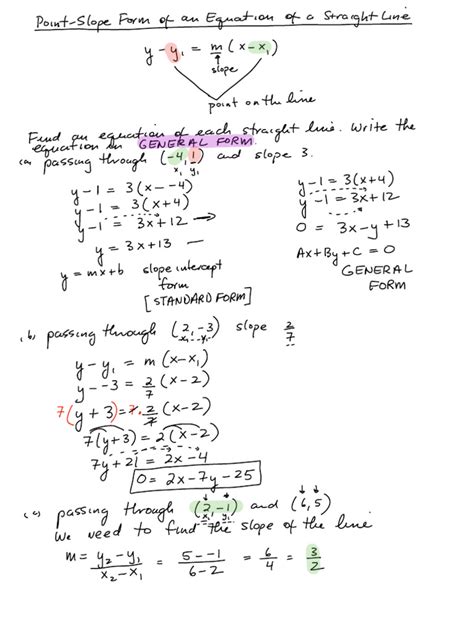 Point-Slope Form of an Equation of a Straight Line
y - y₁ = m (x - x₁)
slope
point on the line
Find an equation of each straight line. Write the
equation in GENERAL FORM.
(a) passing through (-4, 1) and slope 3.
x₁ y₁
y - 1 = 3(x - -4)
y - 1 = 3(x + 4)
y - 1 = 3x + 12 →
y = 3x + 13 —
y = mx + b slope intercept
form
[STANDARD FORM]
y - 1 = 3(x + 4)
y - 1 = 3x + 12
0 = 3x - y + 13
Ax + By + C = 0
GENERAL
FORM
(b) passing through (2, -3) slope 2/7
x₁ y₁
y - y₁ = m (x - x₁)
y - -3 = 2/7 (x - 2)
7(y + 3) = 7·2/7 (x - 2)
7(y + 3) = 2(x - 2)
7y + 21 = 2x - 4
0 = 2x - 7y - 25
(c) passing through (2, -1) and (6, 5)
x₁ y₁
We need to find the slope of the line
m = y₂ - y₁ / x₂ - x₁ = 5 - -1 / 6 - 2 = 6/4 = 3/2